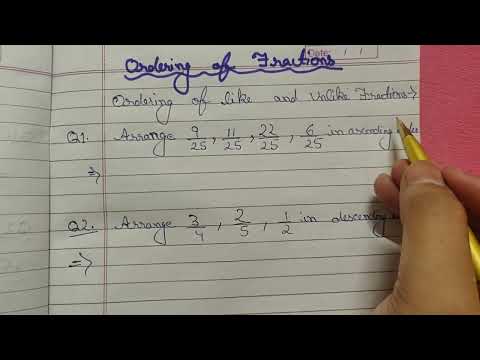 Ordering of Fractions
Date: / /
Ordering of like and Unlike Fractions→
Q1. Arrange 9/25, 11/25, 22/25, 6/25 in ascending
⇒
Q2. Arrange 3/4, 2/5, 1/2 in descending
⇒